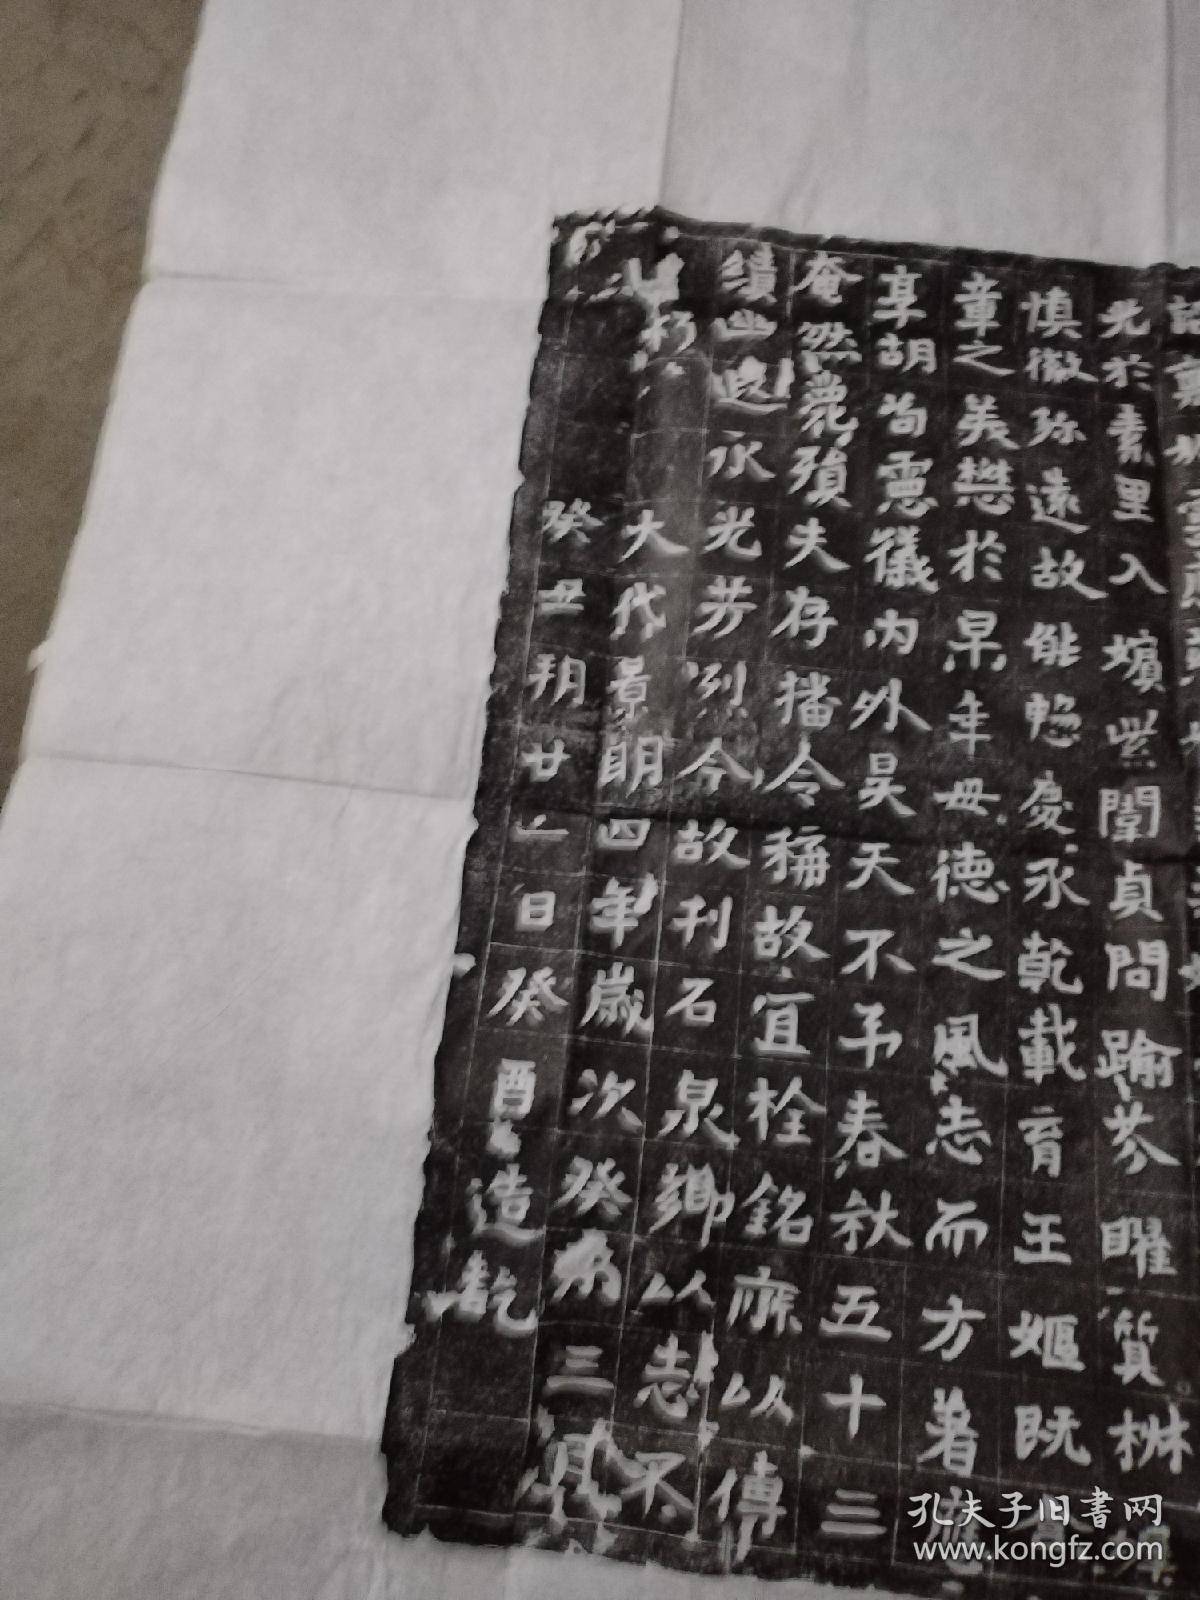 光於素里入嬪紫闈貞問踰芬曜質椒
慎徽弥遠故能愍慶永乾載育王姬既
章之美懋於早年毋德之風志而方著應
享胡耇憲儀內外昊天不弔春秋五十三
奄然薨殞夫存播令稱故宜栓銘庥以傳
績幽遐永光芳烈今故刊石泉鄉以志不
朽 大代景明四年歲次癸未三月
癸丑朔廿一日癸酉造訖
孔夫子旧書网
www.kongfz.com